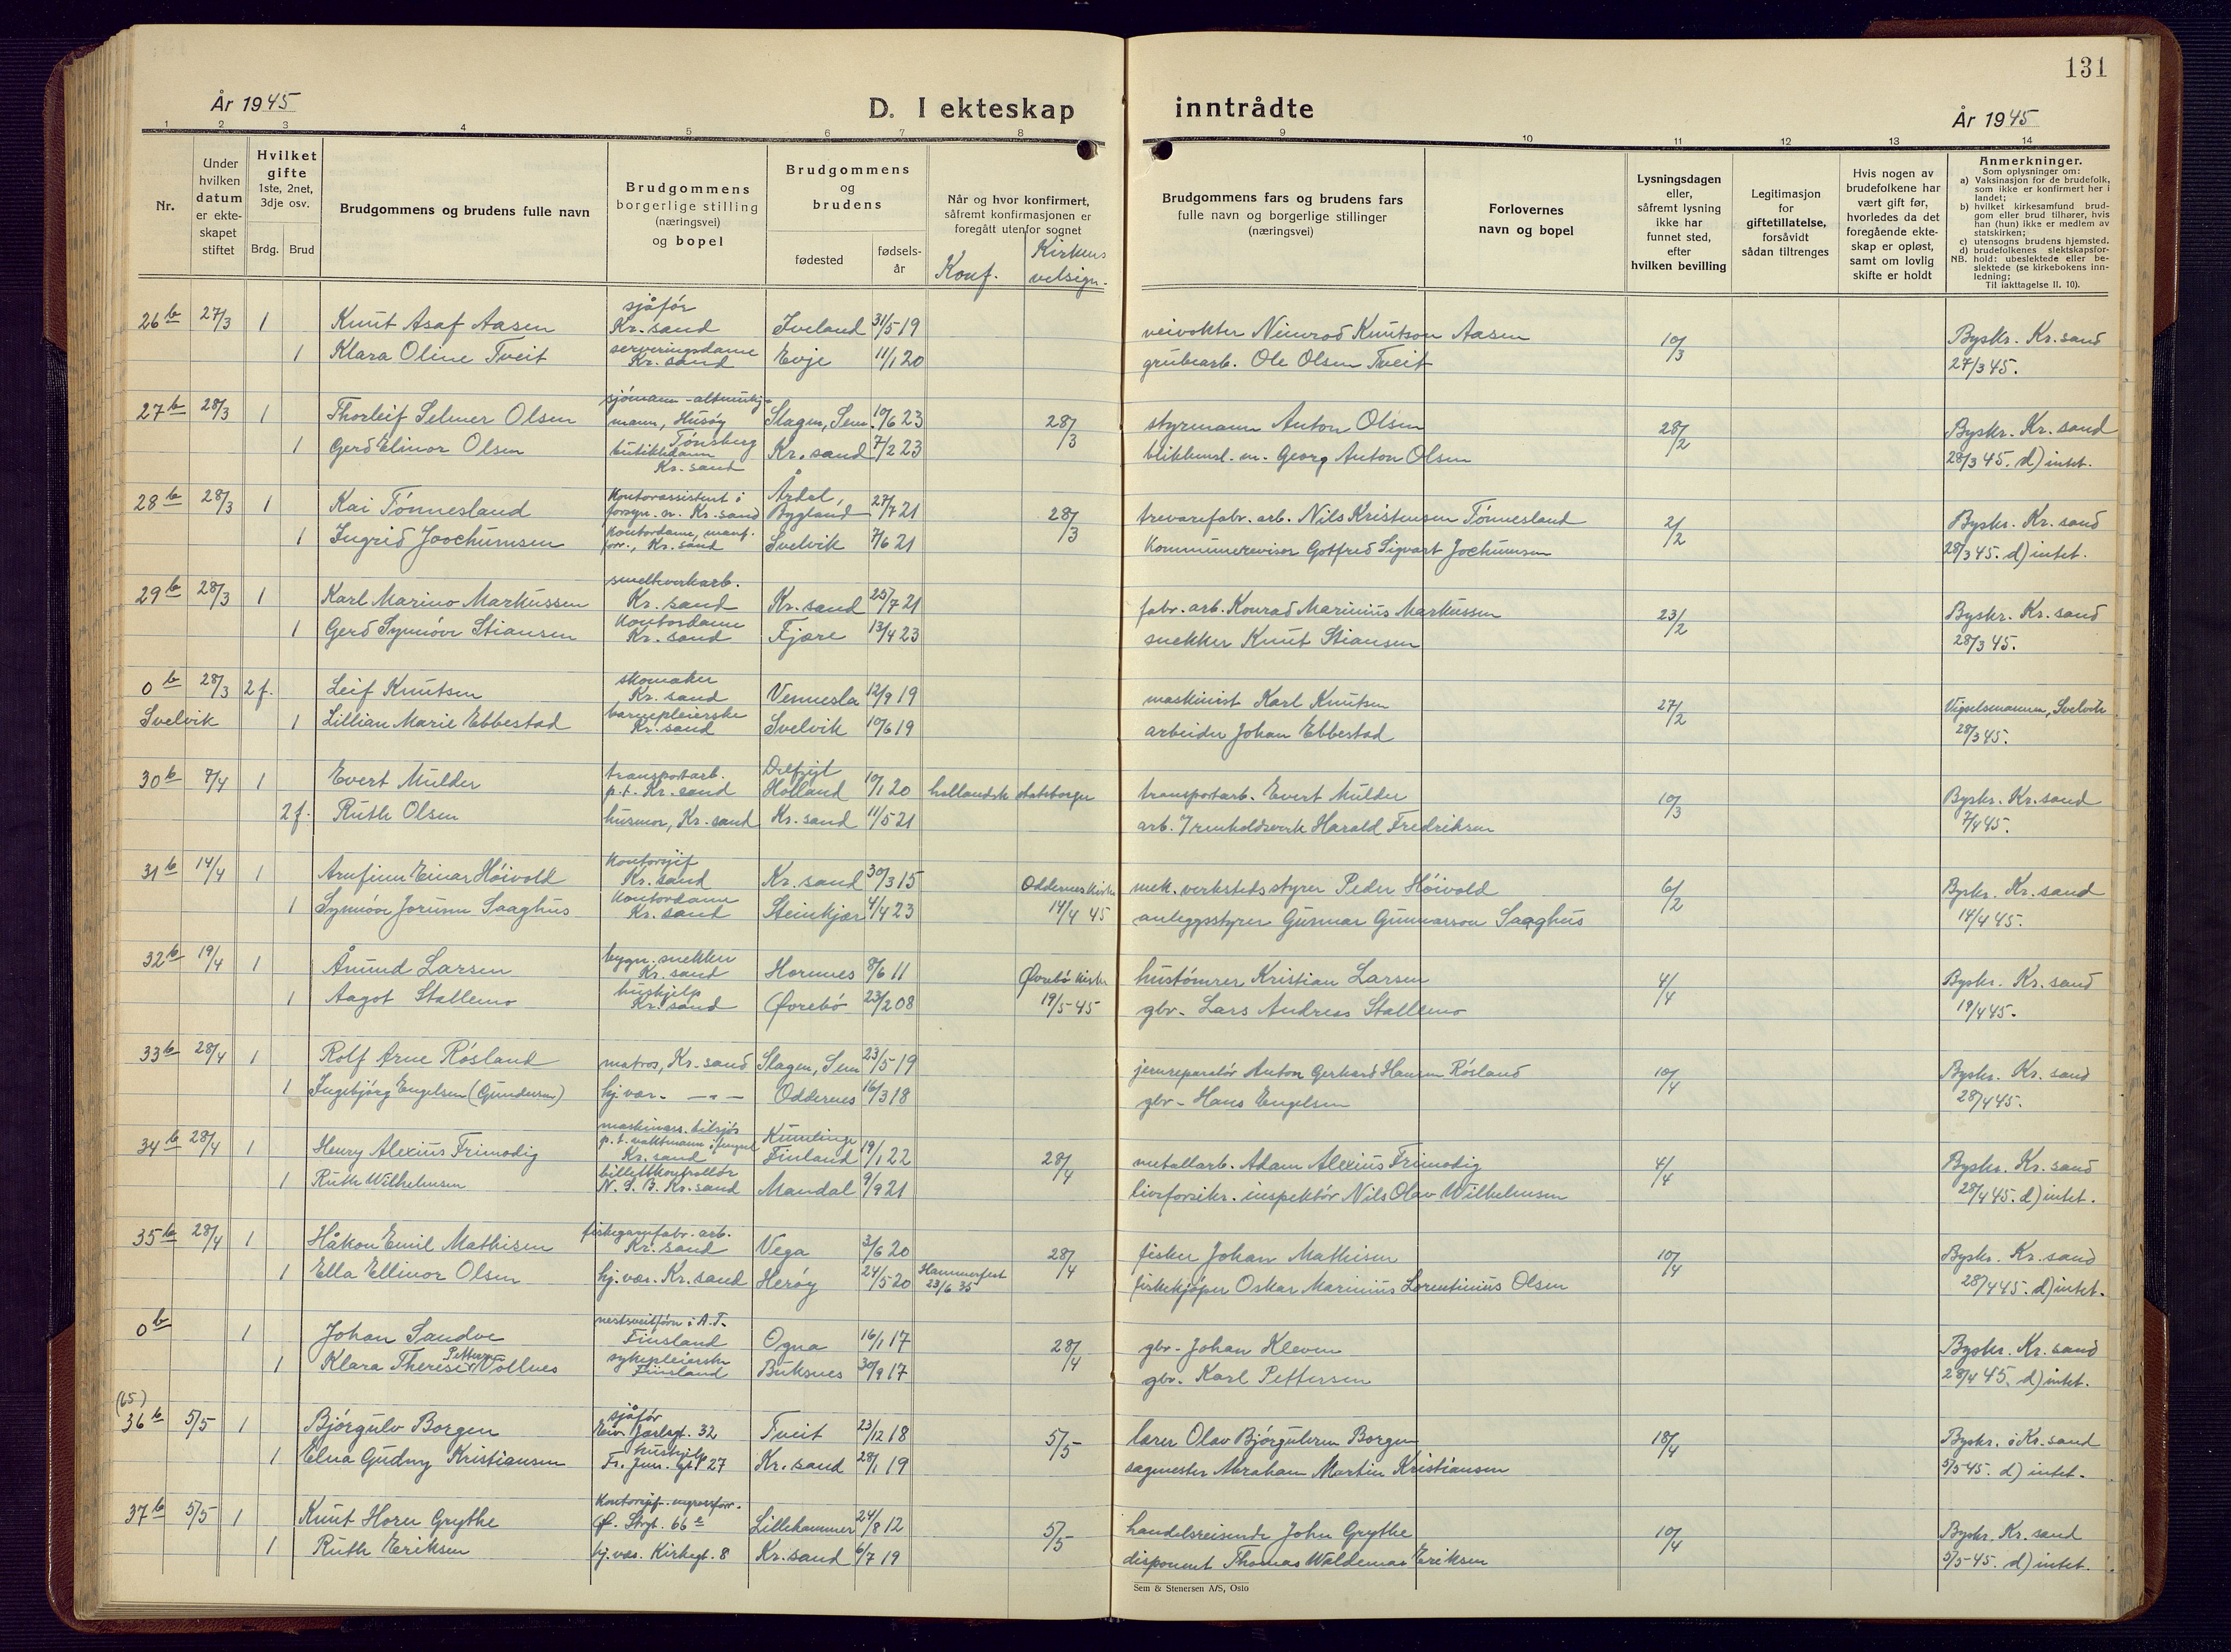 131
År 1945
D. I ekteskap inntrådte
År 1945
1 2 3 4 5 6 7 8 9 10 11 12 13 14
Nr.
Under hvilken datum er ekte-skapet stiftet
Hvilket gifte 1ste, 2net, 3dje osv.
Brdg. Brud
Brudgommens og brudens fulle navn
Brudgommens borgerlige stilling (næringsvei) og bopel
Brudgommens og brudens
fødested
fødsels-år
Når og hvor konfirmert, såfremt konfirmasjonen er foregått utenfor sognet
Konf.
Kirkens velsign.
Brudgommens fars og brudens fars fulle navn og borgerlige stillinger (næringsvei)
Forlovernes navn og bopel
Lysningsdagen eller, såfremt lysning ikke har funnet sted, efter hvilken bevilling
Legitimasjon for giftetillatelse, forsåvidt sådan tiltrenges
Hvis nogen av brudefolkene har vært gift før, hvorledes da det foregående ekte-skap er opløst, samt om lovlig skifte er holdt
Anmerkninger.
Som oplysninger om:
a) Vaksinasjon for de brudefolk, som ikke er konfirmert her i landet;
b) hvilket kirkesamfund brud-gom eller brud tilhører, hvis han (hun) ikke er medlem av statskirken;
c) utensogns brudens hjemsted.
d) brudefolkenes slektskapsfor-hold: ubeslektede eller be-slektede (se kirkebokens inn-ledning;
NB. Til iakttagelse II. 10).
26 b 27/3 1 Knut Asaf Aasen sjåfør Kr. sand Iveland 31/5 19 veivokter Nimrod Knutson Aasen 10/3 Byskr. Kr. sand
1 Klara Oline Tveit serveringsdame Kr. sand Evje 11/1 20 grubearb. Ole Olsen Tveit 27/3 45.
27 b 28/3 1 Thorleif Selmer Olsen sjömann - altmulig-mann, Husøy Tönsberg Slagen, Sem 10/6 23 28/3 styrmann Anton Olsen 28/2 Byskr. Kr. sand
1 Gerd Elinor Olsen butikkdame Kr. sand Kr. sand 7/2 23 blikkensl. m. Georg Anton Olsen 28/3 45. d) intet.
28 b 28/3 1 Kai Tönnesland Kontorassistent i forsyn. n. Kr. sand Årdal, Bygland 27/7 21 28/3 trevarefabr. arb. Nils Kristensen Tönnesland 2/2 Byskr. Kr. sand
1 Ingrid Joochumsen Kontordame, Kr. sand Svelvik 7/6 21 Kommunerevisor Gotfred Sigvart Jochumsen 28/3 45. d) intet.
29 b 28/3 1 Karl Marino Markussen smelteverkarb. Kr. sand Kr. sand 25/7 21 fabr. arb. Konrad Marinius Markussen 23/2 Byskr. Kr. sand
1 Gerd Synnöve Stiansen Kontordame Kr. sand Fjære 13/4 23 snekker Knut Stiansen 28/3 45.
0 b 28/3 2 f. Leif Knutsen skomaker Kr. sand Vennesla 12/9 19 maskinist Karl Knutsen 27/2 Vigselsmannen, Svelvik
Svelvik 1 Lillian Marie Ebbestad barnepleierske Kr. sand Svelvik 10/6 19 arbeider Johan Ebbestad 28/3 45.
30 b 7/4 1 Evert Mulder transportarb. p.t. Kr. sand Delfzijl Holland 10/1 20 hollandsk statsborger transportarb. Evert Mulder 10/3 Byskr. Kr. sand
2 f. Ruth Olsen husmor, Kr. sand Kr. sand 11/5 21 arb. v/ renholdsverk Harald Fredriksen 7/4 45.
31 b 14/4 1 Arnfinn Einar Höivold Kontorsjef Kr. sand Kr. sand 30/3 15 Oddernes kirke mek. verkstedsstyrer Peder Höivold 6/2 Byskr. Kr. sand
1 Synnöve Jorunn Saaghus Kontordame Kr. sand Steinkjær 4/4 23 14/4 45 anleggsstyrer Gunnar Gunnarson Saaghus 14/4 45.
32 b 19/4 1 Ånund Larsen bygn. snekker Kr. sand Hornnes 8/6 11 Øvrebö kirke hustömrer Kristian Larsen 4/4 Byskr. Kr. sand
1 Aagot Stallemo hushjelp Kr. sand Øvrebö 23/2 08 19/5-45 gbr. Lars Andreas Stallemo 19/4 45.
33 b 28/4 1 Rolf Arne Rösland matros, Kr. sand Slagen, Sem 23/5 19 jernreparatör Anton Gerhard Hansen Rösland 10/4 Byskr. Kr. sand
1 Ingebjörg Engelsen (Gundersen) hj. vær. — " — Oddernes 16/3 18 gbr. Hans Engelsen 28/4 45.
34 b 28/4 1 Henry Alexius Frimodig maskinass. tilsjös p.t. vaktmann i fengsel Kr. sand Kumlinge Finland 19/1 22 28/4 metallarb. Adam Alexius Frimodig 4/4 Byskr. Kr. sand
1 Ruth Wilhelmsen billettkontrollör N. S. B. Kr. sand Mandal 9/9 21 livsforsikr. inspektör Nils Olav Wilhelmsen 28/4 45. d) intet.
35 b 28/4 1 Håkon Emil Mathisen fiskegarnfabr. arb. Kr. sand Vega 3/6 20 28/4 fisker Johan Mathisen 10/4 Byskr. Kr. sand
1 Ella Ellinor Olsen hj. vær. Kr. sand Heröy 24/5 20 Hammerfest 23/6 35 fiskekjöper Oskar Marinius Lorentinius Olsen 28/4 45. d) intet.
0 b 1 Johan Sandve i A.T. Finsland Ogna 16/1 17 28/4 gbr. Johan Kleven Byskr. Kr. sand
1 Klara Therese Pettersen Vollnes sykepleierske Finsland Buksnes 30/9 17 gbr. Karl Pettersen 28/4 45. d) intet.
(65)
36 b 5/5 1 Björgulv Borgen sjåför Eiv. Jarlsgt. 32 Tveit 23/12 18 5/5 lærer Olav Björgulven Borgen 18/4 Byskr. i Kr. sand
1 Elna Gudny Kristiansen hushjelp 27 Kr. sand 28/1 19 sagmester Abraham Martin Kristiansen 5/5 45. d) intet.
37 b 5/5 1 Knut Horn Grythe Kontorsjef Ø. Strgt. 66 e Lillehammer 24/8 12 5/5 handelsreisende John Grythe 10/4 Byskr. Kr. sand
1 Ruth Eriksen hj. vær. Kirkegt. 8 Kr. sand 6/7 19 disponent Thomas Waldemar Eriksen 5/5-45. d) intet.
Sem & Stenersen A/S, Oslo